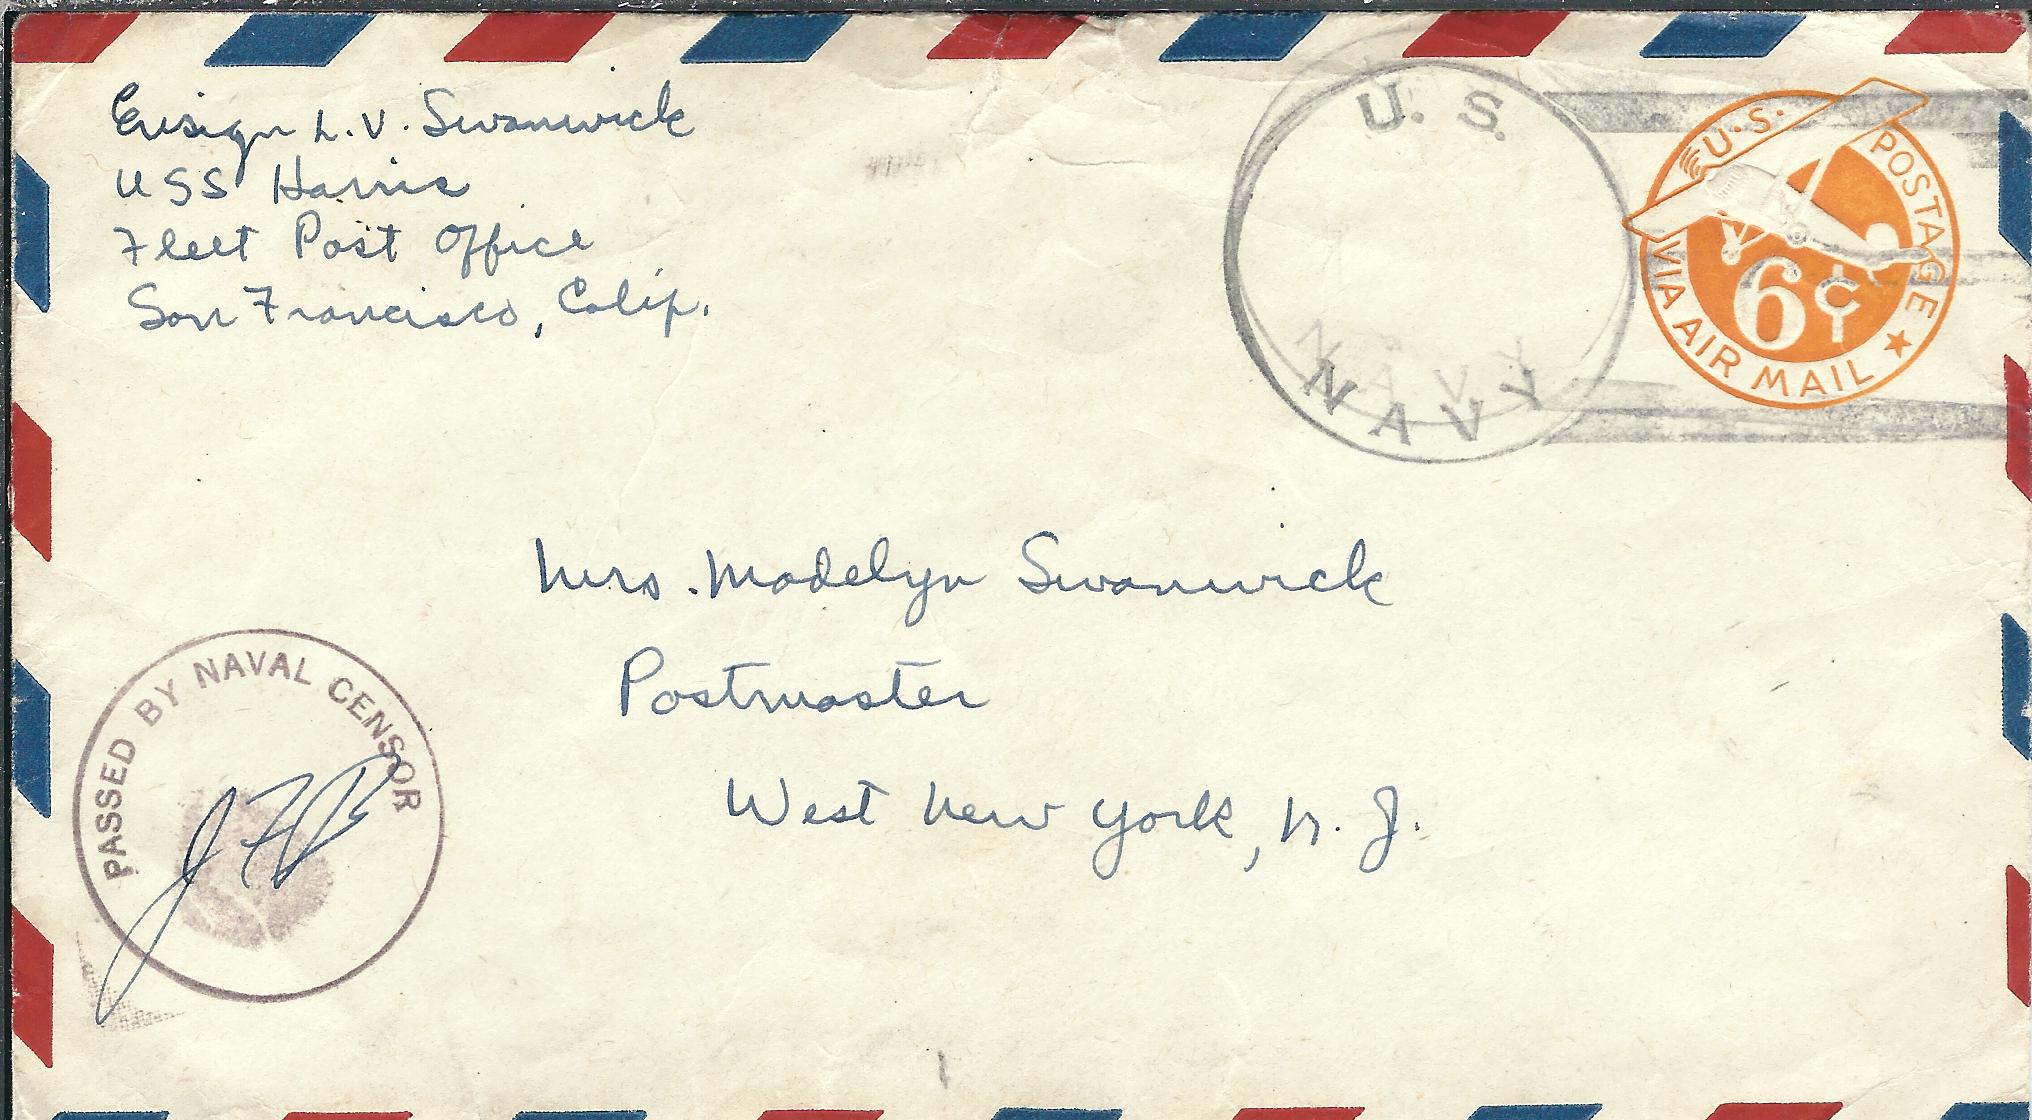 Ensign L. V. Swanwick
USS Harris
Fleet Post Office
San Francisco, Calif.
U. S.
NAVY
NAVY
U.S. POSTAGE
VIA AIR MAIL
6¢
Mrs. Madelyn Swanwick
Postmaster
West New York, N. J.
PASSED BY NAVAL CENSOR